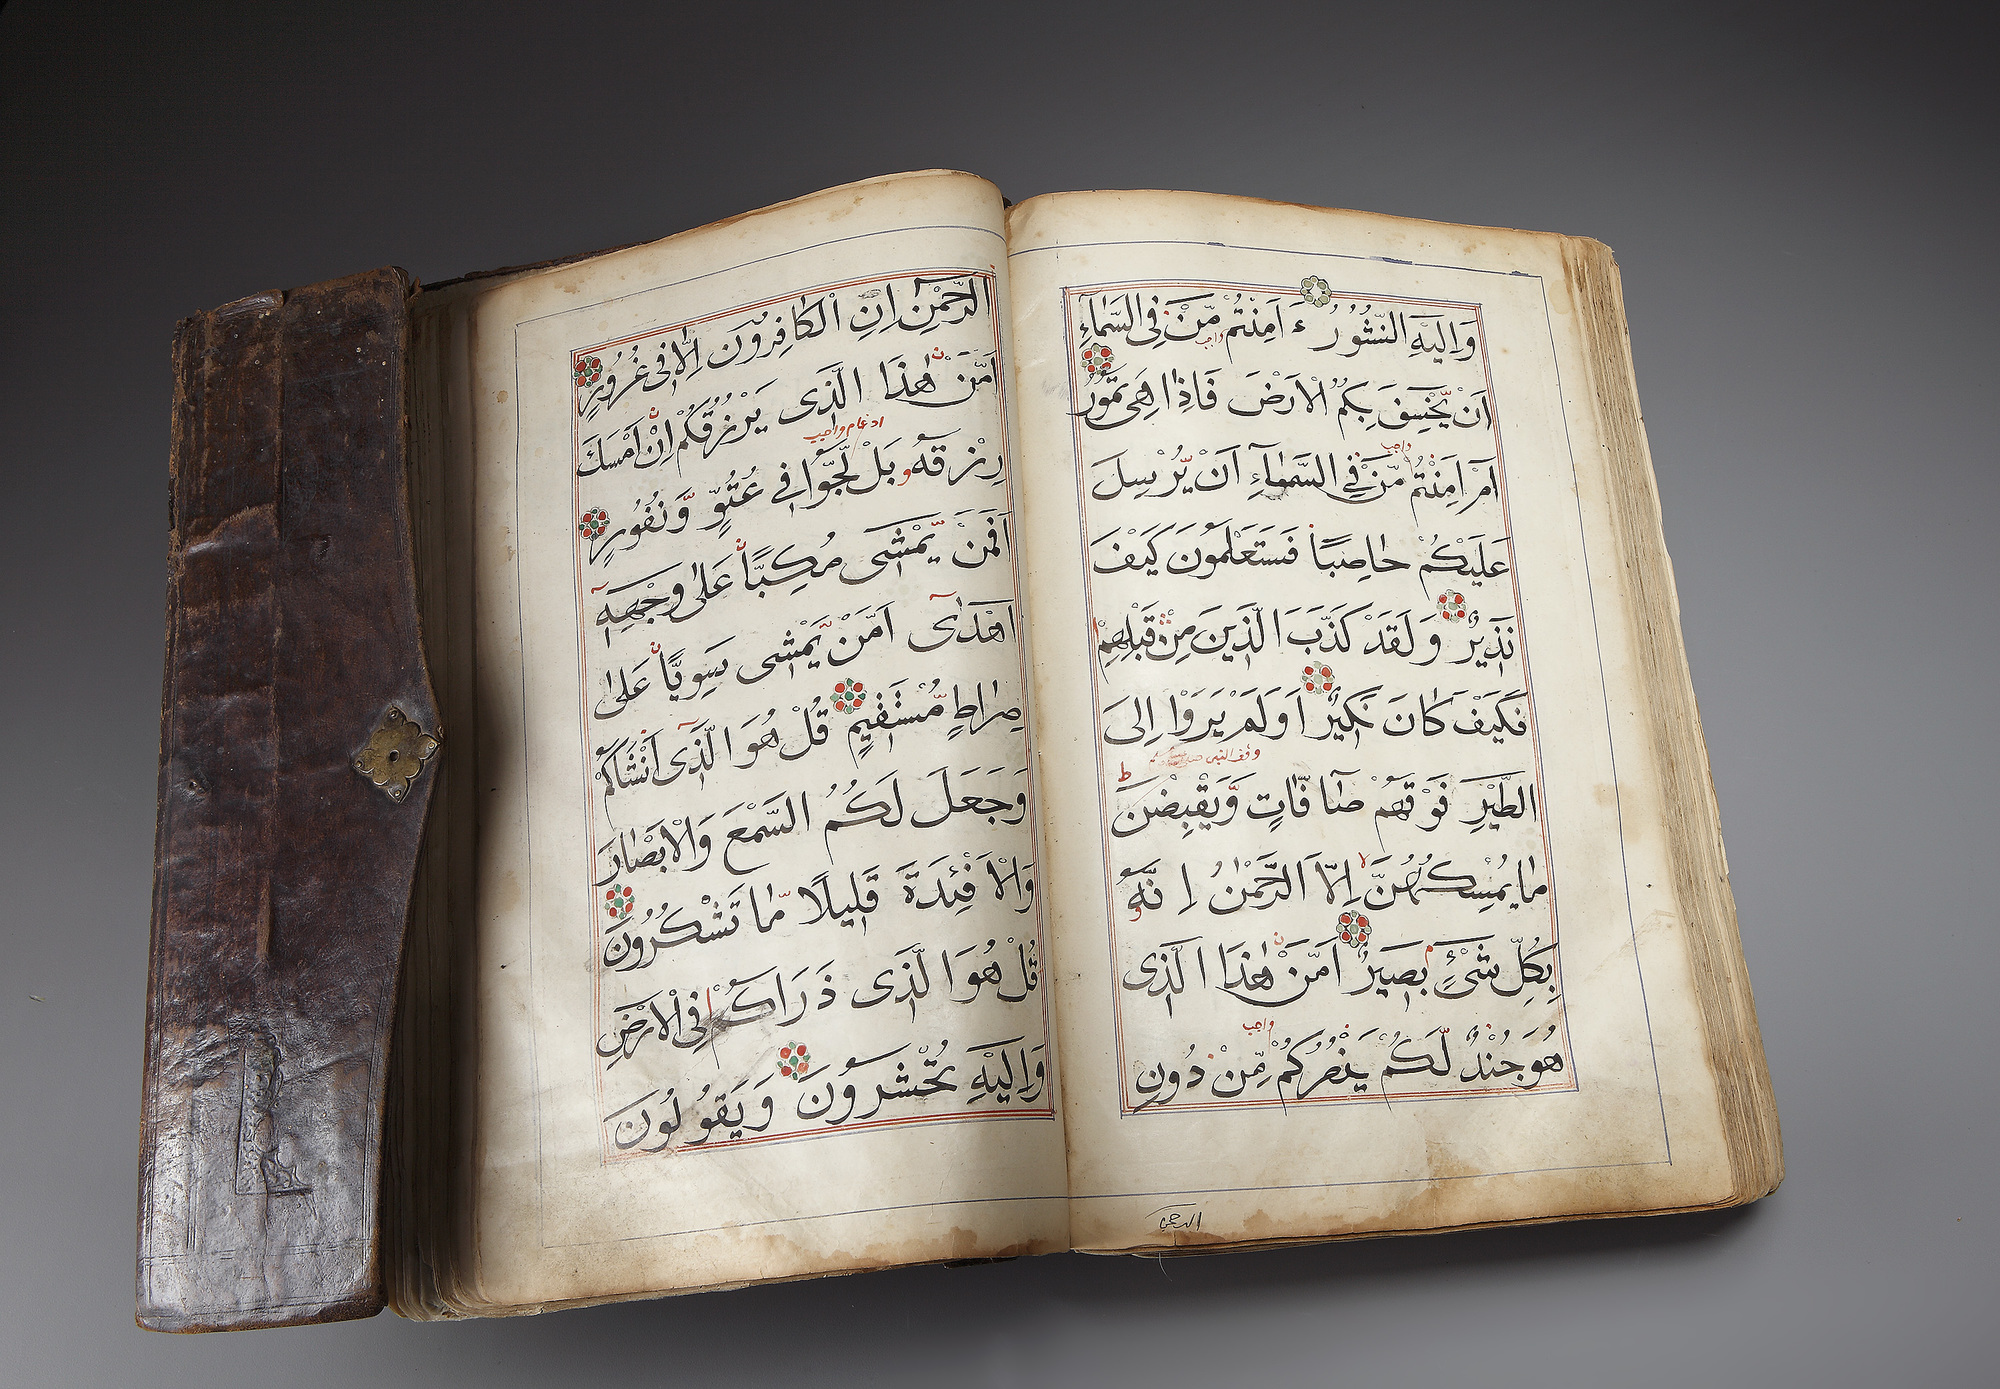 وَاِلَيْهِ النُّشُورُ ءَاَمِنْتُمْ مَّنْ فِى السَّمَاءِ
واجب
اَنْ يَّخْسِفَ بِكُمُ الْاَرْضَ فَاِذَا هِىَ تَمُورُ
واجب
اَمْ اَمِنْتُمْ مَّنْ فِى السَّمَاءِ اَنْ يُّرْسِلَ
عَلَيْكُمْ حَاصِبًا فَسَتَعْلَمُونَ كَيْفَ
نَذِيرٌ وَلَقَدْ كَذَّبَ الَّذِينَ مِنْ قَبْلِهِمْ
فَكَيْفَ كَانَ نَكِيرٌ اَوَلَمْ يَرَوْا اِلَى
وقف النبى
ط
الطَّيْرِ فَوْقَهُمْ صَافَّاتٍ وَّيَقْبِضْنَ
مَا يُمْسِكُهُنَّ اِلَّا الرَّحْمٰنُ اِنَّهُ
بِكُلِّ شَىْءٍ بَصِيرٌ اَمَّنْ هٰذَا الَّذِى
واجب
هُوَ جُنْدٌ لَّكُمْ يَنْصُرُكُمْ مِّنْ دُونِ
الرحمن
الرَّحْمٰنِ اِنِ الْكَافِرُونَ اِلَّا فِى غُرُورٍ
اَمَّنْ هٰذَا الَّذِى يَرْزُقُكُمْ اِنْ اَمْسَكَ
ادغام واجب
رِزْقَهُ بَلْ لَّجُّوا فِى عُتُوٍّ وَّنُفُورٍ
اَفَمَنْ يَّمْشِى مُكِبًّا عَلٰى وَجْهِهِ
اَهْدٰى اَمَّنْ يَّمْشِى سَوِيًّا عَلٰى
صِرَاطٍ مُّسْتَقِيمٍ قُلْ هُوَ الَّذِى اَنْشَاَكُمْ
وَجَعَلَ لَكُمُ السَّمْعَ وَالْاَبْصَارَ
وَالْاَفْئِدَةَ قَلِيلًا مَّا تَشْكُرُونَ
قُلْ هُوَ الَّذِى ذَرَاَكُمْ فِى الْاَرْضِ
وَاِلَيْهِ تُحْشَرُونَ وَيَقُولُونَ